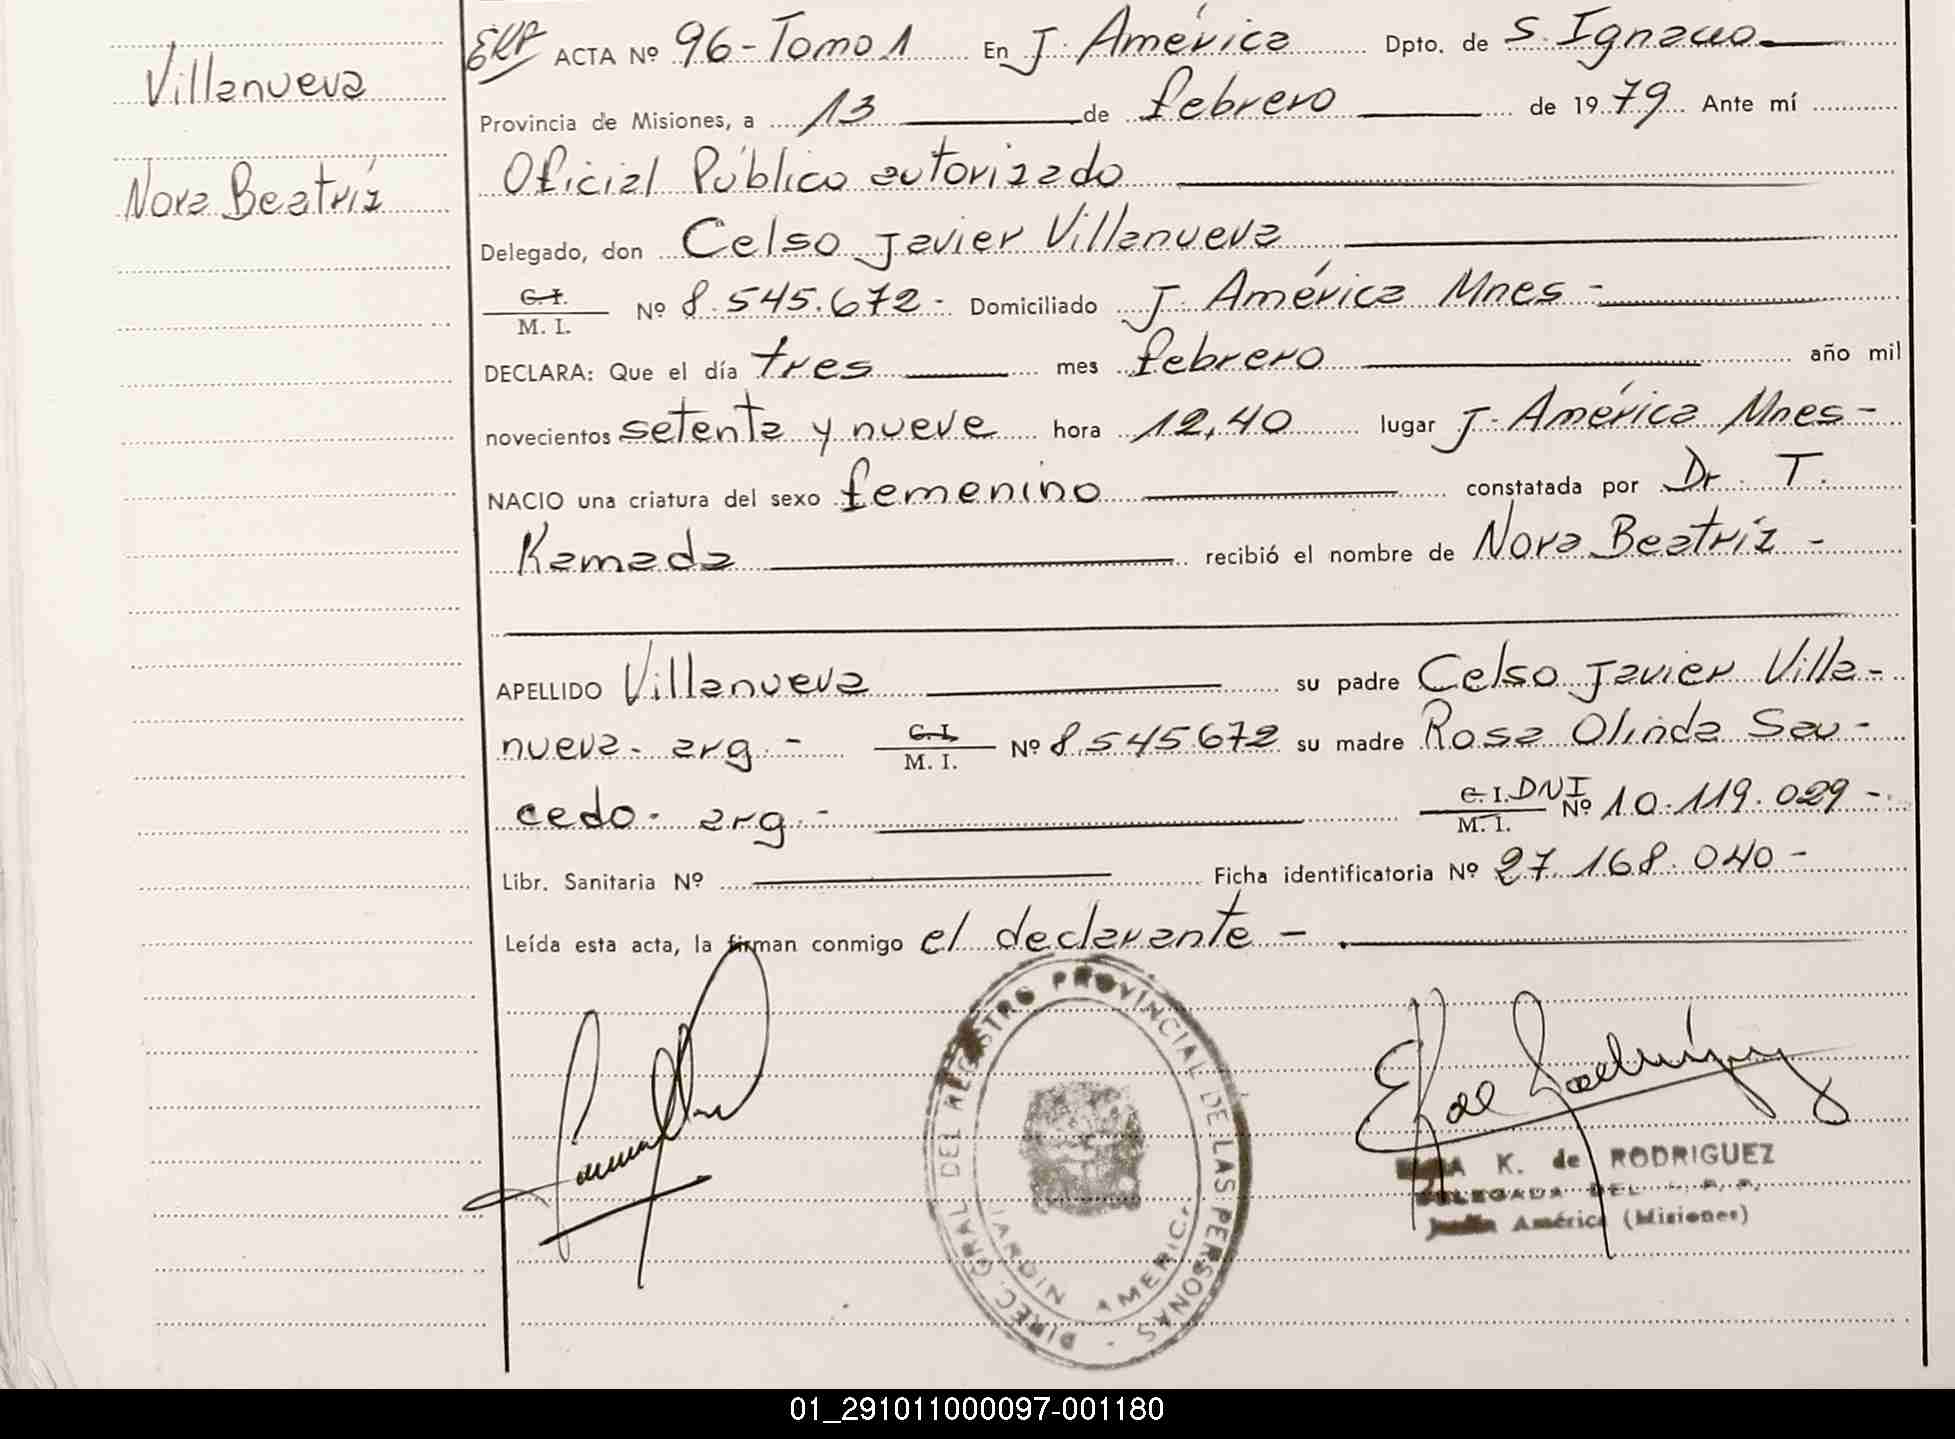 Villanueva
Nora Beatríz
EKR ACTA Nº 96-Tomo 1 En J. América Dpto. de S. Ignacio
Provincia de Misiones, a 13 de febrero de 1979 Ante mí
Oficial Público autorizado
Delegado, don Celso Javier Villanueva
C.I. M. I. Nº 8.545.672- Domiciliado J. América Mnes-
DECLARA: Que el día tres mes febrero año mil
novecientos setenta y nueve hora 12,40 lugar J. América Mnes-
NACIO una criatura del sexo femenino constatada por Dr. T.
Kamada recibió el nombre de Nora Beatríz -
APELLIDO Villanueva su padre Celso Javier Villa-
nueva- arg.- C.I. M. I. Nº 8.545672 su madre Rosa Olinda Sau-
cedo- arg.- C.I. M.I. DNI Nº 10.119.029-
Libr. Sanitaria Nº Ficha identificatoria Nº 27.168.040-
Leída esta acta, la firman conmigo el declarante-
DIREC. GRAL DEL REGISTRO PROVINCIAL DE LAS PERSONAS -
JARDIN AMERICA
EKde Rodríguez
K. de RODRIGUEZ
DELEGADA DEL R. P. P.
Jardín América (Misiones)
01_291011000097-001180